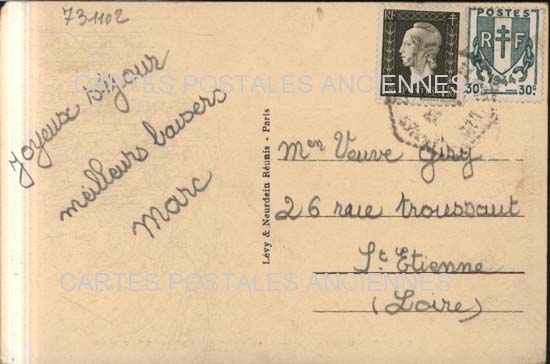 731102
POSTES
RF
R F
1944
30c 30c
CARTES POSTALES ANCIENNES
Joyeux séjour
meilleurs baisers
Marc
Lévy & Neurdein Réunis - Paris
Veuve Giry
26 rue
St Etienne
CARTES POSTALES ANCIENNES
(Loire)